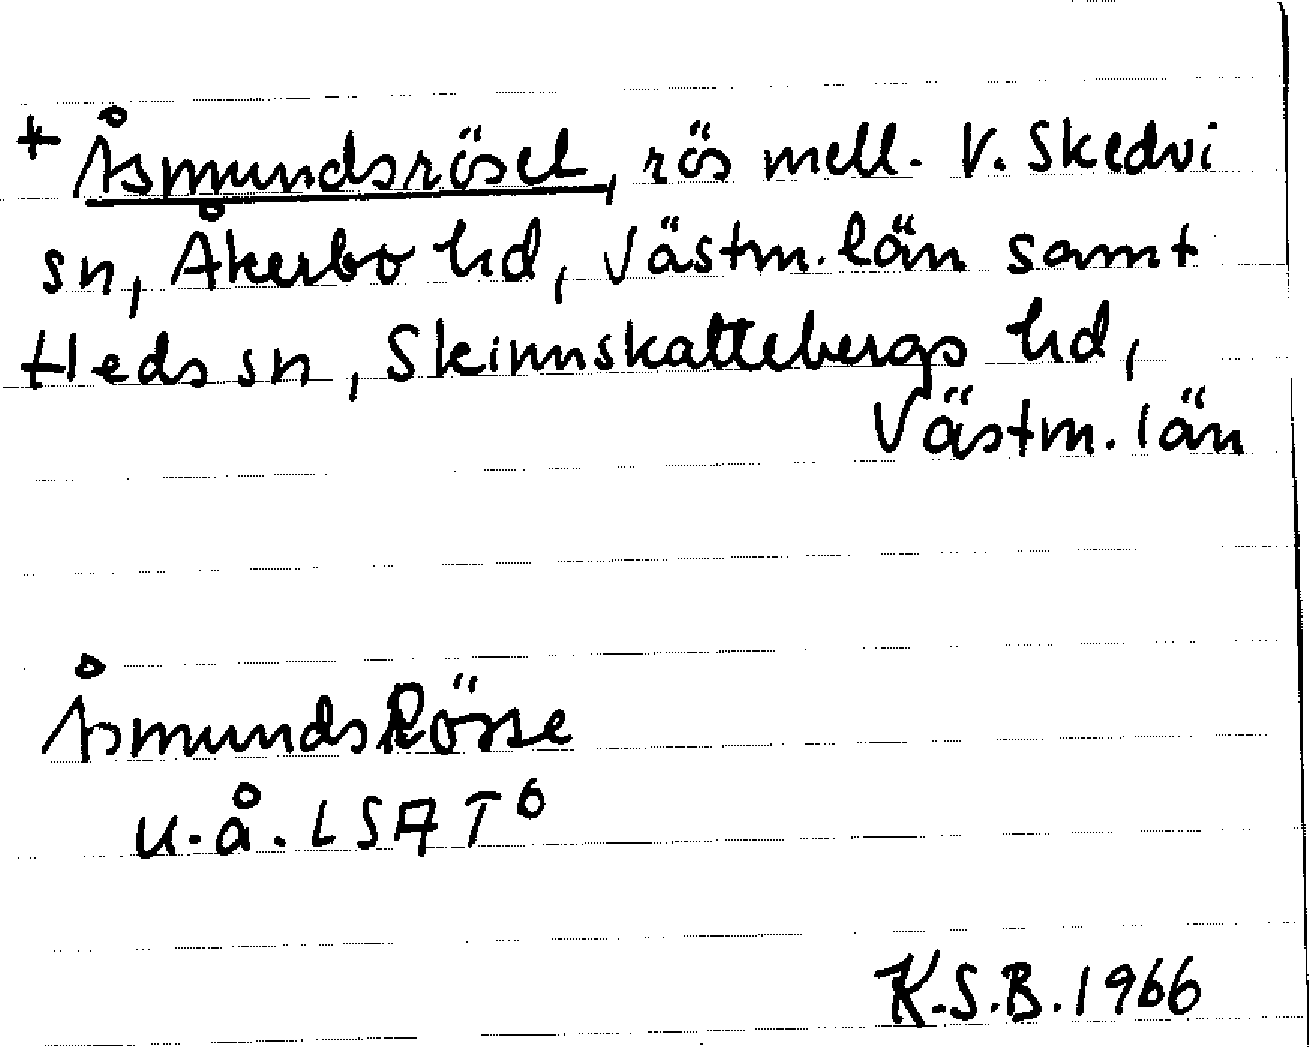 + Åsmundsröset, rös mell. V. Skedvi
sn, Åkerbo hd, Västm. län samt
Heds sn, Skinnskattebergs hd,
Västm. län
Åsmunds Rösse
u. å. LSA T6
K.S.B. 1966